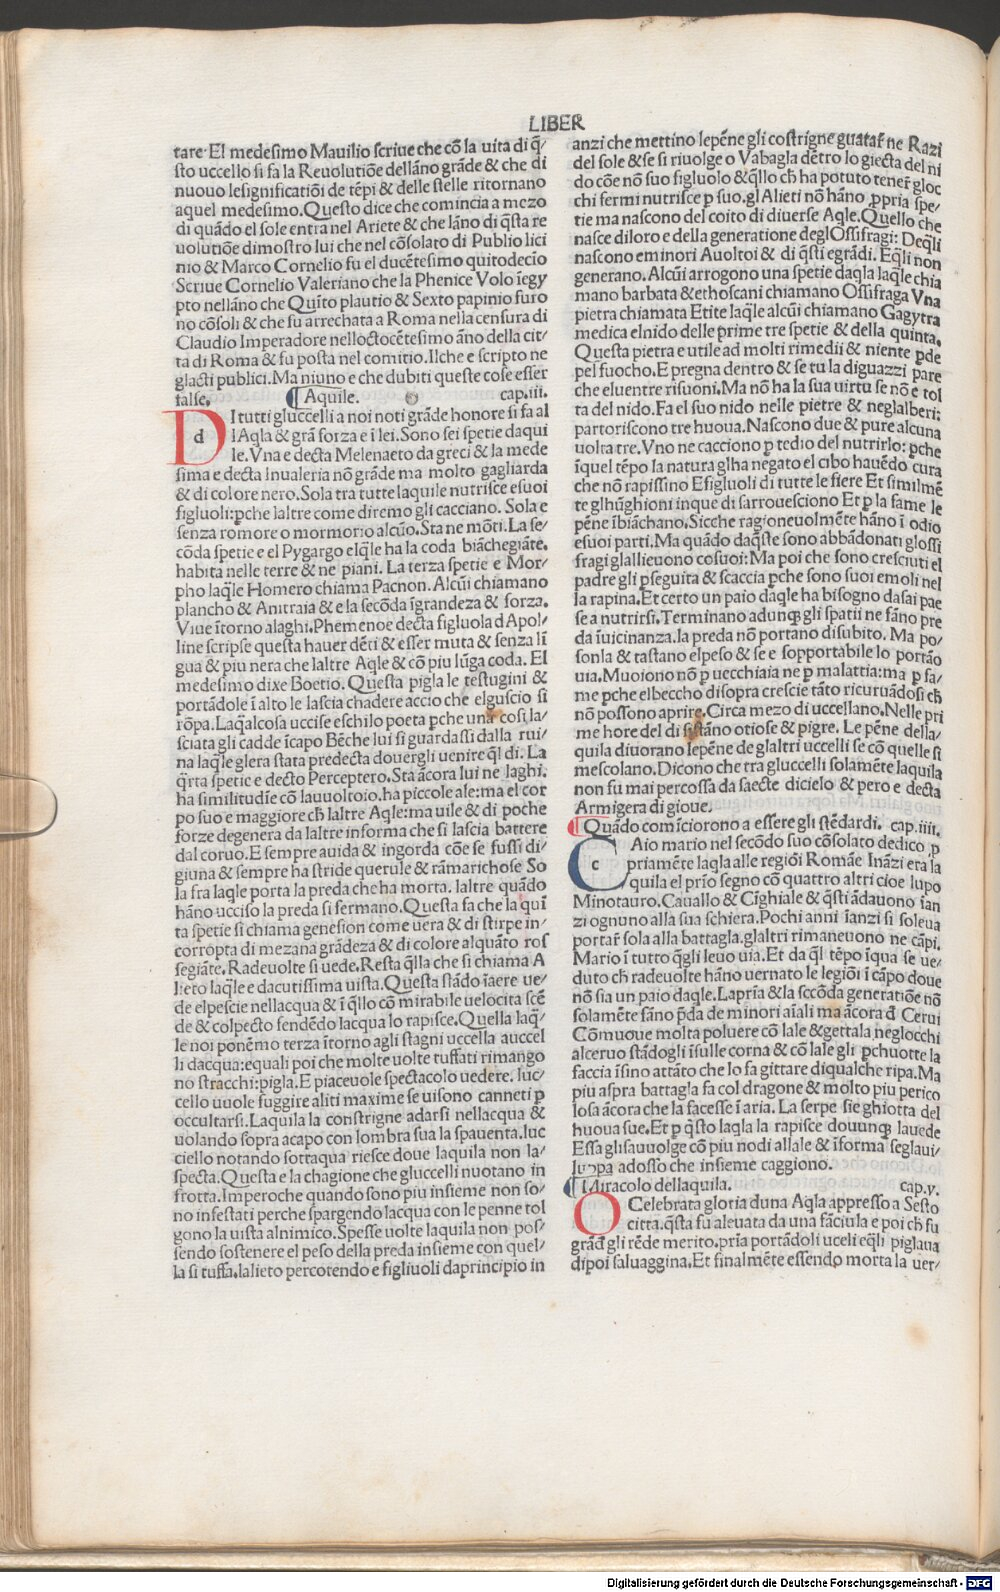 LIBER
tare. El medesimo Mauilio scriue che cō la uita di q̄/
sto uccello si fa la Reuolutiōe dellāno grāde & che di
nuouo lesignificatiōi de tēpi & delle stelle ritornano
aquel medesimo. Questo dice che comincia a mezo
di quādo el sole entra nel Ariete & che lāno di q̄sta re
uolutiōe dimostro lui che nel cōsolato di Publio lici
nio & Marco Cornelio fu el ducētesimo quitodecio
Scriue Cornelio Valeriano che la Phenice Volo īegy
pto nellāno che Quīto plautio & Sexto papinio furo
no cōsoli & che fu arrechata a Roma nella censura di
Claudio Imperadore nelloctocētesimo āno della cit/
ta di Roma & fu posta nel comitio. Ilche e scripto ne
glacti publici. Ma niuno e che dubiti queste cose esser
false.
Aquile. cap.iii.
D d I tutti gluccelli a noi noti grāde honore si fa al
lAqla & grā forza e ī lei. Sono sei spetie daqui
le. Vna e decta Melenaeto da greci & la mede
sima e decta Inualeria nō grāde ma molto gagliarda
& di colore nero. Sola tra tutte laquile nutrisce esuoi
figluoli: pche laltre come diremo gli cacciano. Sola e
senza romore o mormorio alcūo. Sta ne mōti. La se/
cōda spetie e el Pygargo elq̄le ha la coda biāchegiāte.
habita nelle terre & ne piani. La terza spetie e Mor/
pho laq̄le Homero chiama Pacnon. Alcūi chiamano
plancho & Anitraia & e la secōda īgrandeza & forza.
Viue ītorno alaghi. Phemenoe decta figluola dApol/
line scripse questa hauer dēti & esser muta & senza lī
gua & piu nera che laltre Aqle & cō piu lūga coda. El
medesimo dixe Boetio. Questa pigla le testugini &
portādole ī alto le lascia chadere accio che elguscio si
rōpa. Laq̄l alcosa uccise eschilo poeta pche una cosi la/
sciata gli cadde īcapo Bēche lui si guardassi dalla rui/
na laq̄le glera stata predecta douergli uenire q̄l di. La
q̄rta spetie e decto Perceptero. Sta ācora lui ne laghi.
ha similitudīe cō lauuoltoio. ha piccole ale: ma el cor
po suo e maggiore ch̄ laltre Aqle: ma uile & di poche
forze degenera da laltre informa che si lascia battere
dal coruo. E sempre auida & ingorda cōe se fussi di/
giuna & sempre ha stride querule & rāmarichose So
la fra laq̄le porta la preda che ha morta. laltre quādo
hāno ucciso la preda si fermano. Questa fa che la quī
ta spetie si chiama genesion come uera & di stirpe in/
corropta di mezana grādeza & di colore alquāto ros
segiāte. Radeuolte si uede. Resta q̄lla che si chiama A
lieto laq̄le e dacutissima uista. Questa stādo īaere ue/
de elpescie nellacqua & ī q̄llo cō mirabile uelocita scē
de & colpecto sendēdo lacqua lo rapisce. Quella laq̄/
le noi ponēmo terza ītorno agli stagni uccella auccel
li dacqua: equali poi che molte uolte tuffati rimango
no stracchi: pigla. E piaceuole spectacolo uedere. luc/
cello uuole fuggire aliti maxime se uisono canneti p
occultarsi. Laquila la constrigne adarsi nellacqua &
uolando sopra acapo con lombra sua la spauenta. luc
ciello notando sottaqua riesce doue laquila non la/
specta. Questa e la chagione che gluccelli nuotano in
frotta. Imperoche quando sono piu insieme non so/
no infestati perche spargendo lacqua con le penne tol
gono la uista alnimico. Spesse uolte laquila non pos/
sendo sostenere el peso della preda insieme con quel/
la si tuffa. lalieto percotendo e figliuoli daprincipio in
anzi che mettino lepēne gli costrigne guatar̄ ne Razi
del sole & se si riuolge o Vabagla dētro lo giecta del ni
do cōe nō suo figluolo & q̄llo ch̄ ha potuto tener̄ gloc
chi fermi nutrisce p suo. gl Alieti nō hāno ppria spe/
tie ma nascono del coito di diuerse Aqle. Quello che
nasce diloro e della generatione deglOssifragi: Deq̄li
nascono eminori Auoltoi & di q̄sti egrādi. Eq̄li non
generano. Alcūi arrogono una spetie daqla laq̄le chia
mano barbata & ethoscani chiamano Ossifraga Vna
pietra chiamata Etite laq̄le alcūi chiamano Gagytra
medica elnido delle prime tre spetie & della quinta.
Questa pietra e utile ad molti rimedii & niente pde
pel fuocho. E pregna dentro & se tu la diguazzi pare
che eluentre risuoni. Ma nō ha la sua uirtu se nō e tol
ta del nido. Fa el suo nido nelle pietre & neglalberi:
partoriscono tre huoua. Nascono due & pure alcuna
uolta tre. Vno ne cacciono p tedio del nutrirlo: pche
īquel tēpo la natura glha negato el cibo hauēdo cura
che nō rapissino Efigluoli di tutte le fiere Et similmē
te glhūghioni inque di sarrouesciono Et p la fame le
pēne ībiāchano. Sicche ragioneuolmēte hāno ī odio
esuoi parti. Ma quādo daq̄ste sono abbādonati glossi
fragi glallieuono cosuoi: Ma poi che sono cresciuti el
padre gli pseguita & scaccia pche sono suoi emoli nel
la rapina. Et certo un paio daq̄le ha bisogno dasai pae
se a nutrirsi. Terminano adunq̄ gli spatii ne fāno pre
da īuicinanza. la preda nō portano disubito. Ma po/
sonla & tastano elpeso & se e sopportabile lo portāo
uia. Muoiono nō p uecchiaia ne p malattia: ma p fa/
me pche elbeccho disopra crescie tāto ricuruādosi ch̄
nō possono aprire. Circa mezo di uccellano. Nelle pri
me hore del di si stāno otiose & pigre. Le pēne della/
quila diuorano lepēne de glaltri uccelli se cō quelle si
mescolano. Dicono che tra gluccelli solamēte laquila
non fu mai percossa da saecte dicielo & pero e decta
Armigera di gioue.
Quādo comīciorono a essere gli stēdardi. cap.iiii.
C c Aio mario nel secōdo suo cōsolato dedico p
priamēte laqla alle regiōi Romāe Ināzi era la
quila el prīo segno cō quattro altri cioe lupo
Minotauro. Cauallo & Cīghiale & q̄sti ādauono īan
zi ognuno alla sua schiera. Pochi anni īanzi si soleua
portar̄ sola alla battagla. glaltri rimaneuono ne cāpi.
Mario ī tutto q̄gli leuo uia. Et da q̄l tēpo īqua se ue/
duto ch̄ radeuolte hāno uernato le legiōi ī cāpo doue
nō sia un paio daq̄le. Laprīa & la secōda generatiōe nō
solamēte fāno p̄da de minori aīali ma ācora d̄ Cerui
Cōmuoue molta poluere cō lale & gettala neglocchi
alceruo stādogli īsulle corna & cō lale gli pchuotte la
faccia īsino attāto che lo fa gittare diqualche ripa. Ma
piu aspra battagla fa col dragone & molto piu perico
losa ācora che la facesse ī aria. La serpe sie ghiotta del
huoua sue. Et p q̄sto laqla la rapisce douunq̄ lauede
Essa glisauuolge cō piu nodi allale & īforma seglaui/
luppa adosso che insieme caggiono.
Miracolo dellaquila. cap.v.
O Celebrata gloria duna Aqla appresso a Sesto
citta. q̄sta fu aleuata da una fāciula e poi ch̄ fu
grād̄ gli rēde merito. prīa portādoli uceli eq̄li piglaua
dipoi saluaggina. Et finalmēte essendo morta la uer/
Digitalisierung gefördert durch die Deutsche Forschungsgemeinschaft - DFG